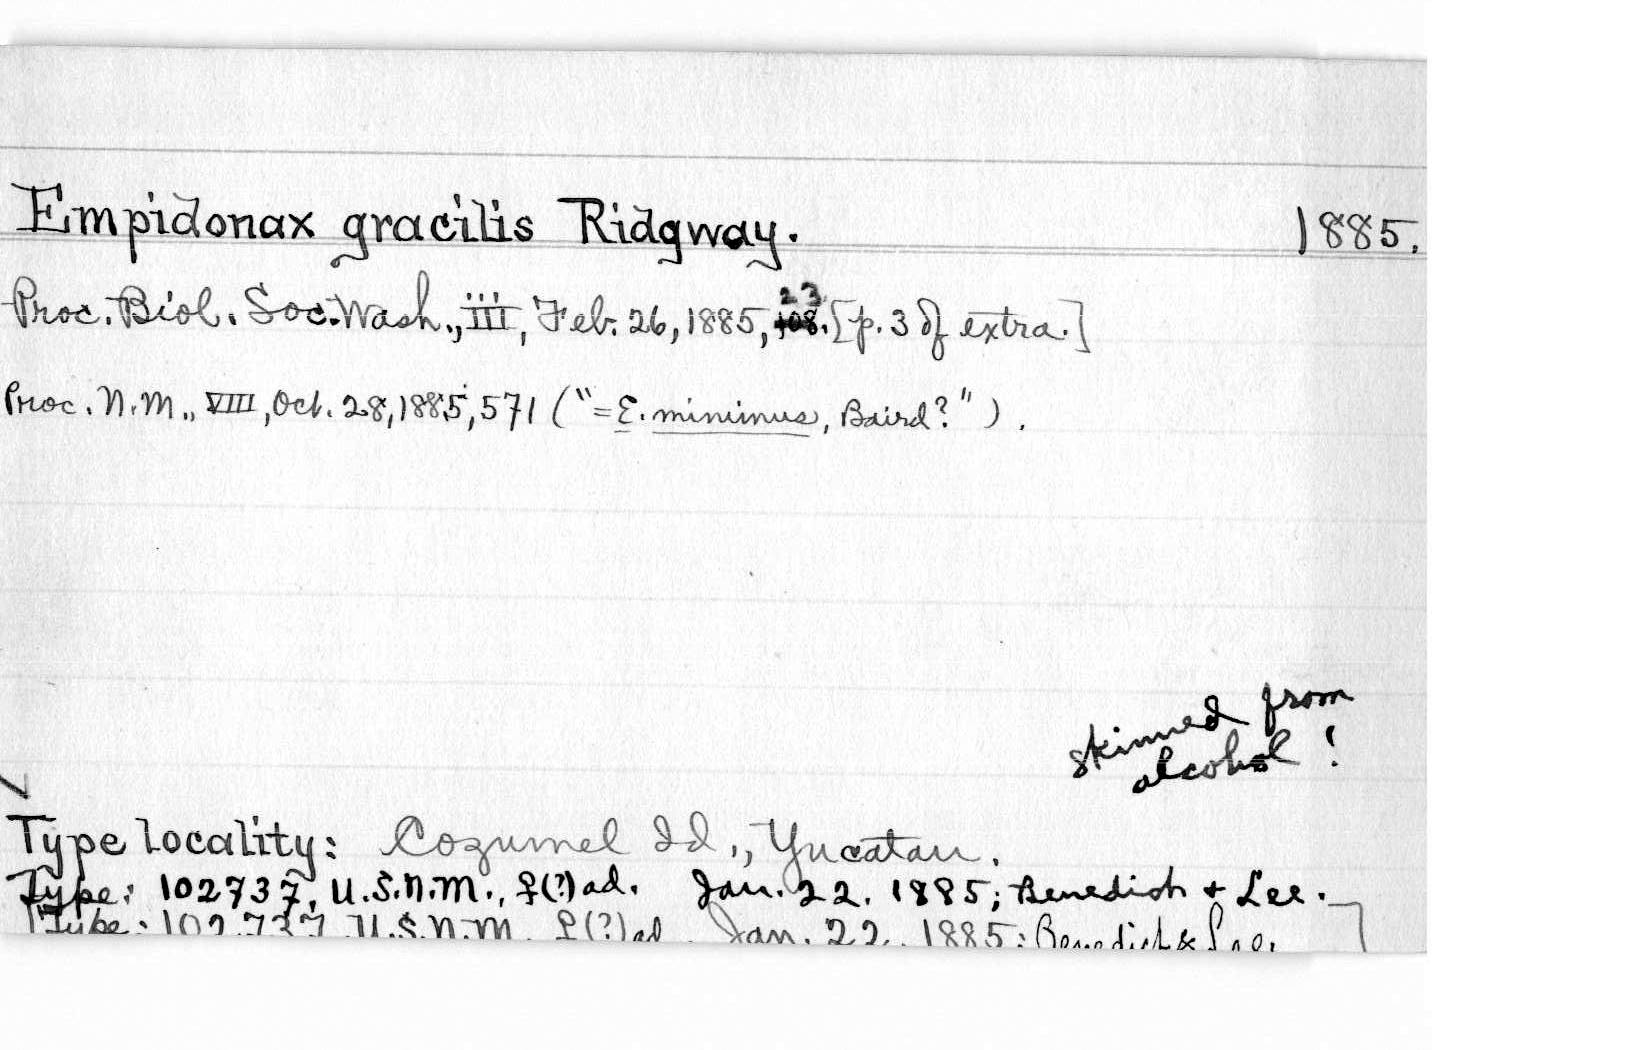 Empidonax gracilis Ridgway. 1885.
Proc. Biol. Soc. Wash., III, Feb. 26, 1885, 23. [p. 3 of extra.]
Proc. N. M., VIII, Oct. 28, 1885, 571 ("= E. minimus, Baird?").
skinned from
alcohol!
Type locality: Cozumel Id., Yucatan.
Type: 102737, U.S.N.M., ♀(?) ad. Jan. 22, 1885; Benedict & Lee.
Type: 102,737 U.S.N.M. ♀(?) ad. Jan. 22, 1885; Benedict & Lee.